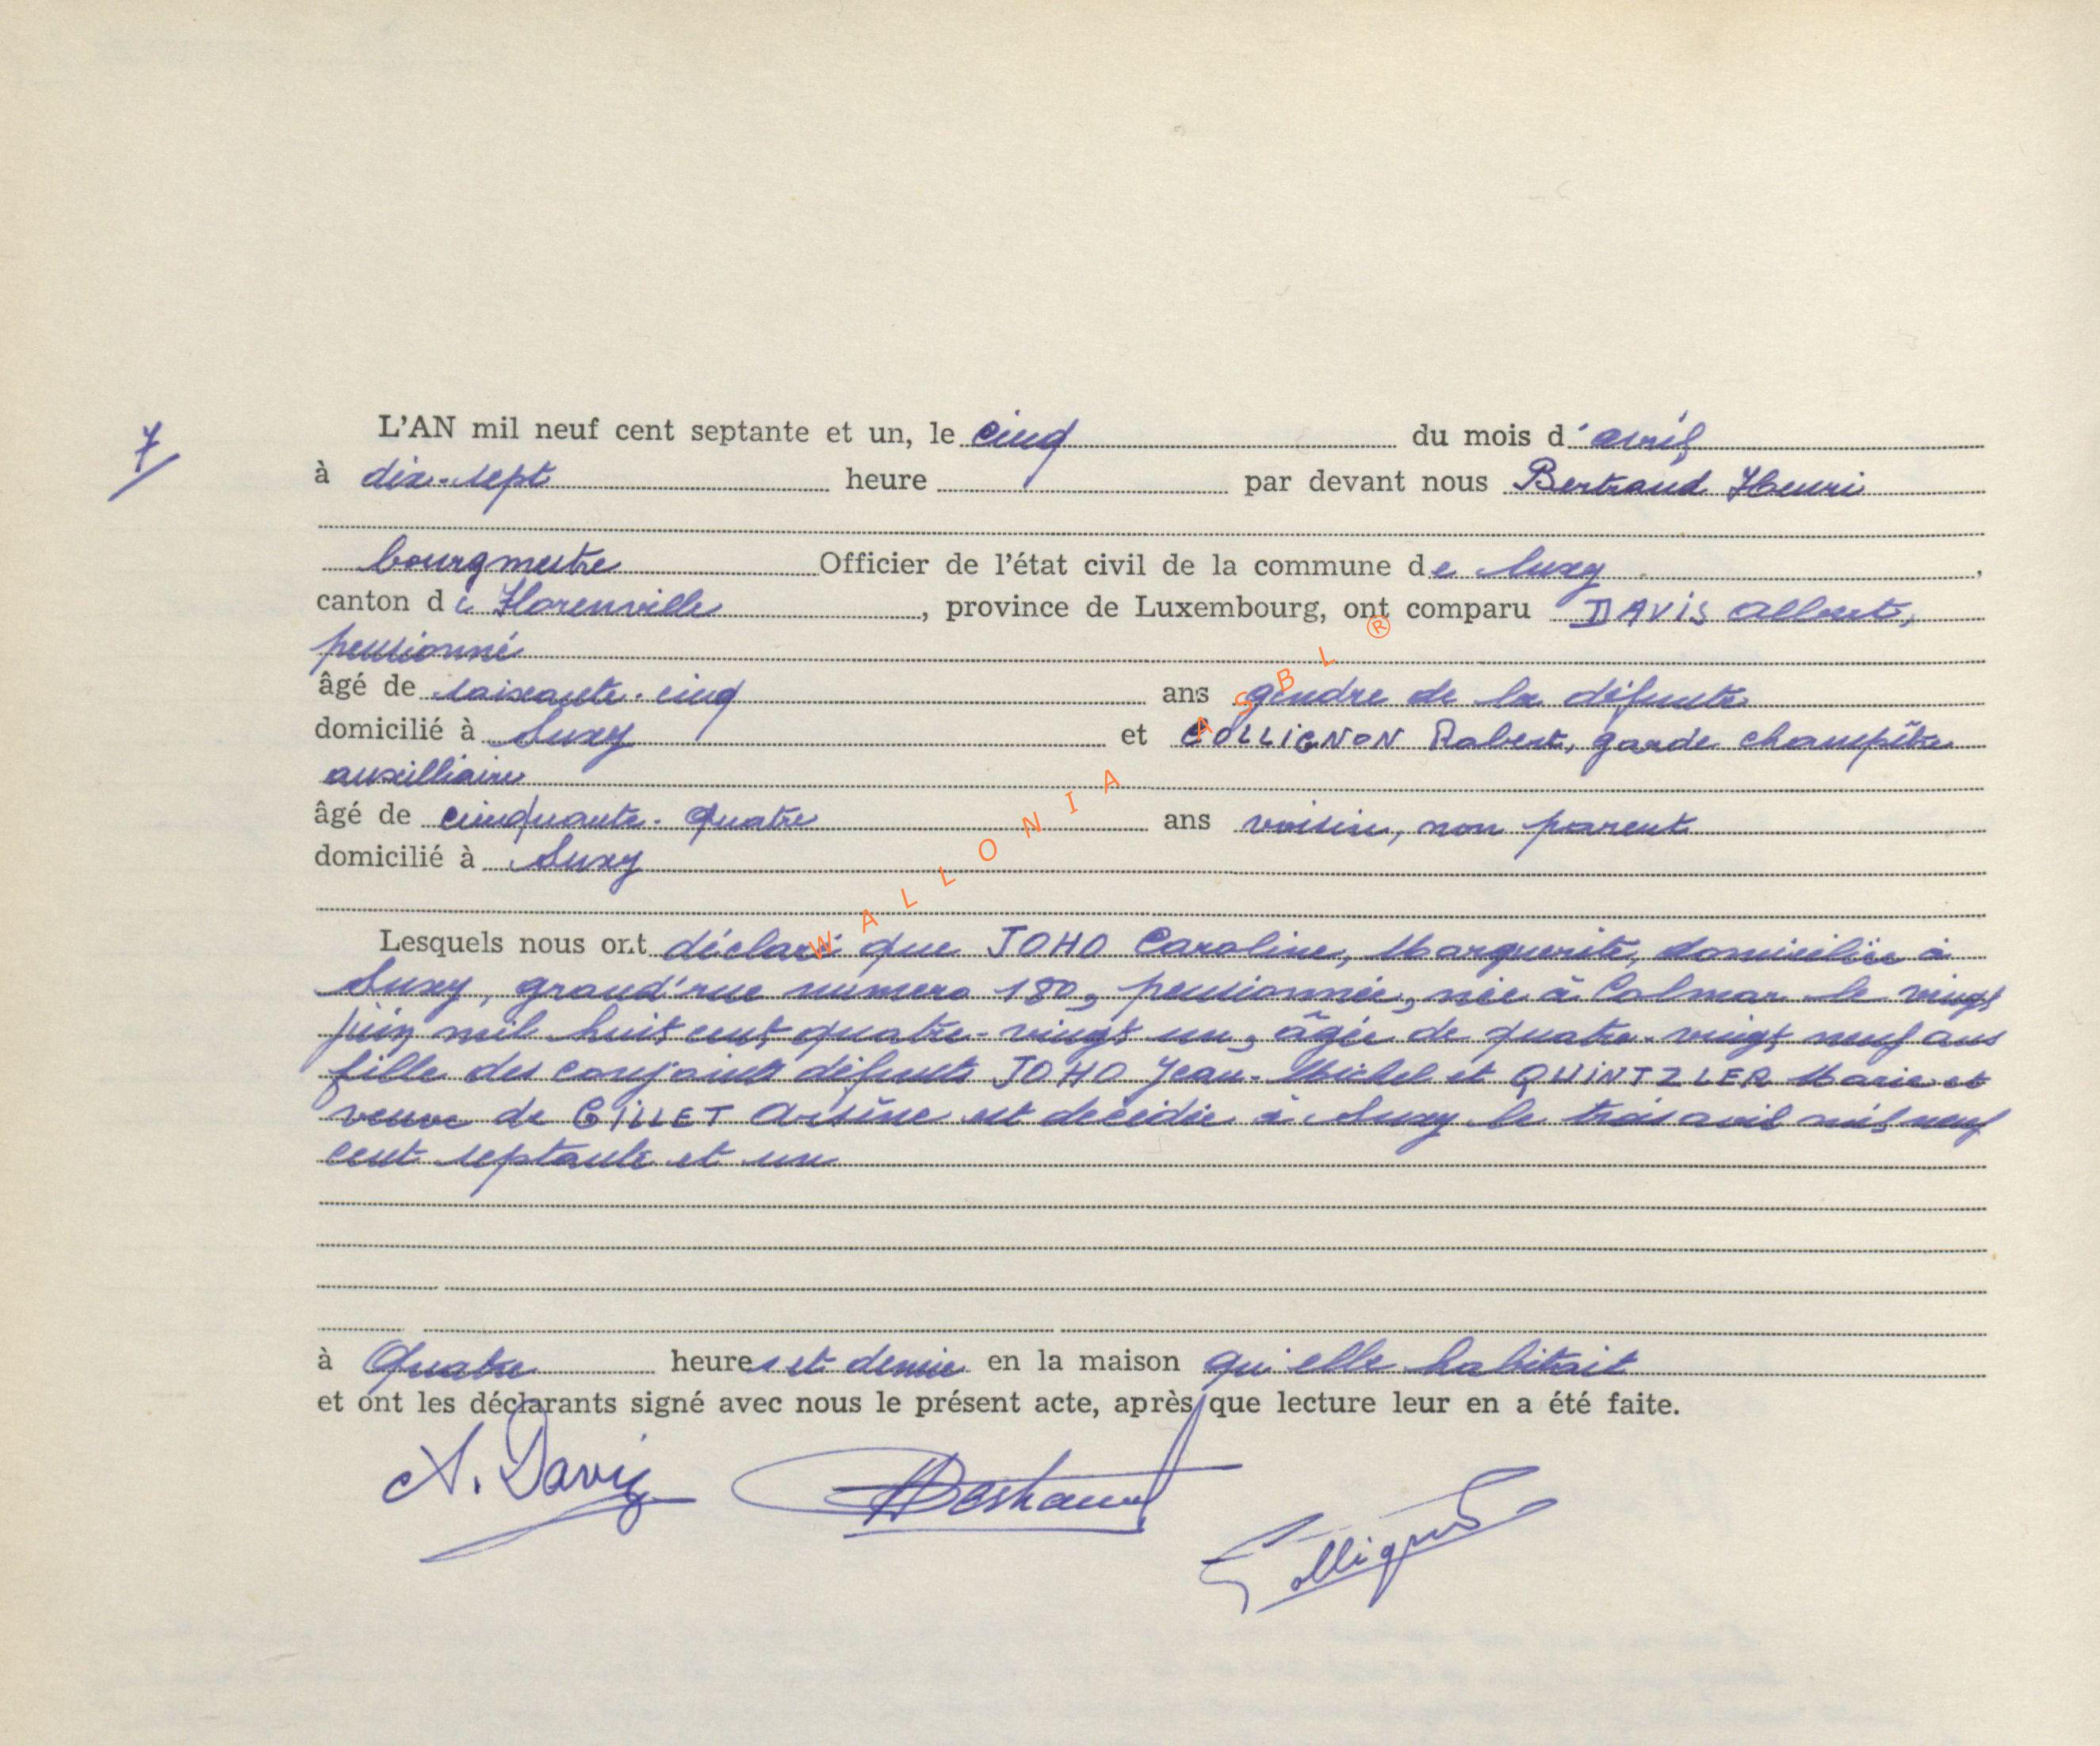 7
L'AN mil neuf cent septante et un, le cinq du mois d'avril
à dix-sept heure par devant nous Bertrand Henri
bourgmestre Officier de l'état civil de la commune de Suxy,
canton de Florenville, province de Luxembourg, ont comparu DAVIS Albert,
pensionné
âgé de soixante-cinq ans gendre de la défunte
domicilié à Suxy et COLLIGNON Robert, garde champêtre
auxilliaire
âgé de cinquante-quatre ans voisin, non parent
domicilié à Suxy
Lesquels nous ont déclaré que JOHO Caroline, Marguerite, domiciliée à
Suxy, grand'rue numero 180, pensionnée, née à Colmar le vingt
juin mil huit cent quatre-vingt un, âgée de quatre-vingt neuf ans
fille des conjoints défunts JOHO Jean-Michel et QUINTZLER Marie et
veuve de GILLET Arsène est décédée à Suxy le trois avril mil neuf
cent septante et un
à Quatre heures et demie en la maison qu'elle habitait
et ont les déclarants signé avec nous le présent acte, après que lecture leur en a été faite.
A. Davis HBertrand
Collignon
WALLONIA ASBL ®